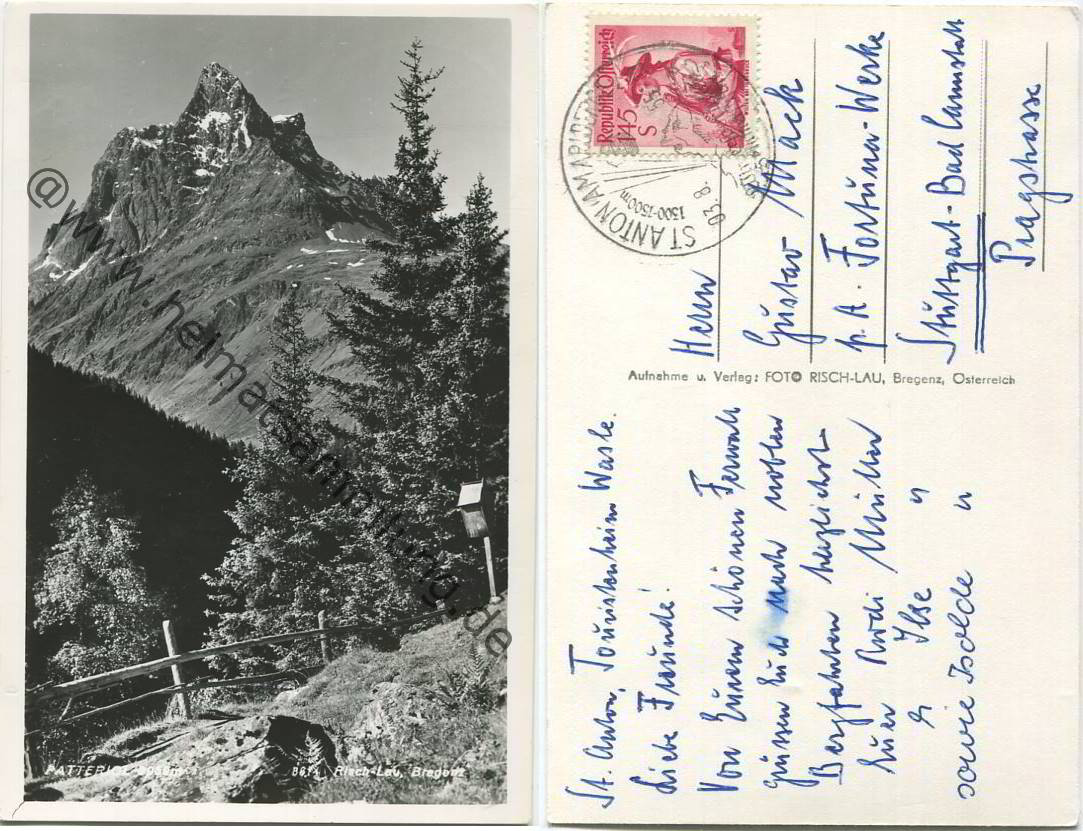 PATTERIOL 3059m
8614 Risch-Lau, Bregenz
@www.heimatsammlung.de
Republik Österreich
1.45
S
ST. ANTON AM ARLBERG
1300-1500m
03.8.
55
Herrn
Gustav Mack
p. A. Fortuna-Werke
Stuttgart-Bad Cannstatt
Pragstrasse
Aufnahme u. Verlag: FOTO RISCH-LAU, Bregenz, Österreich
St. Anton, Touristenheim Wasle.
Liebe Freunde!
Von Eurem schönen Ferwall
grüssen Euch nach noblen
Bergfahrten herzlichst
Euer Rudi Müller
" Ilse "
sowie Isolde "